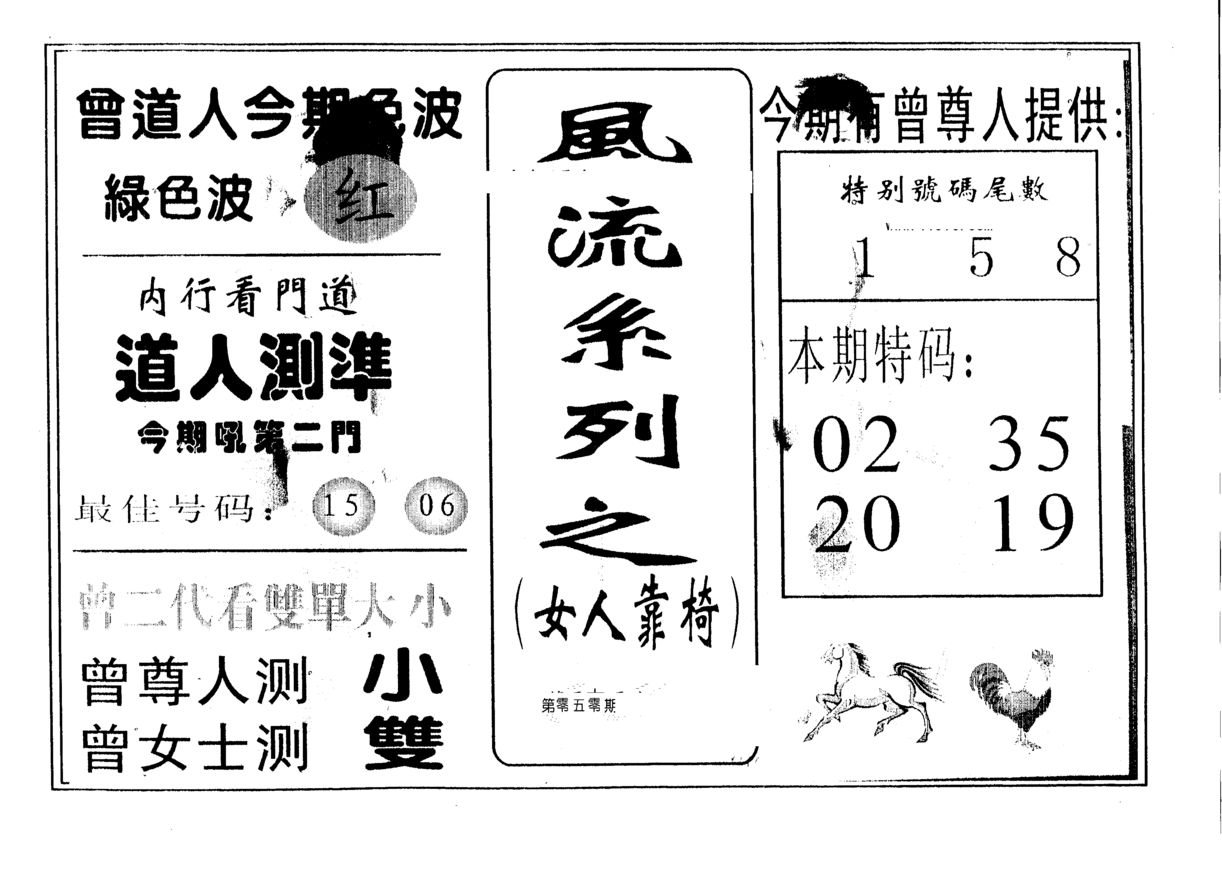 曾道人今期色波
綠色波 红
内行看門道
道人測準
今期吼第二門
最佳号码： 15 06
曾二代看雙單大小
曾尊人测 小
曾女士测 雙
風流系列之
(女人靠椅)
第零五零期
今期有曾尊人提供:
特别號碼尾數
1 5 8
本期特码:
02 35
20 19